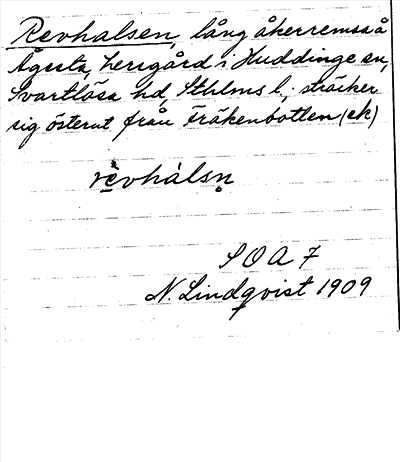 Revhalsen, lång åkerremsa å
Ågesta, herrgård i Huddinge sn,
Svartlösa hd, Sthlms l.; sträcker
sig österut från Fräkenbotten (ek)
rèvhálsn̥
S O A 7
N. Lindqvist 1909